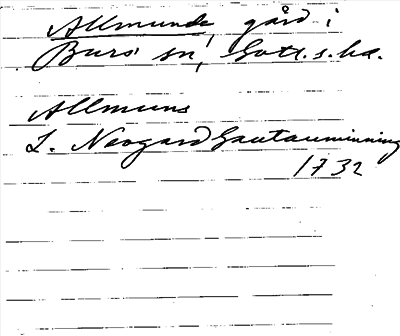 Allmunde, gård i
Burs sn, Gotl. s. hd.
Allmuns
L. Neogard Gautauminning
1732